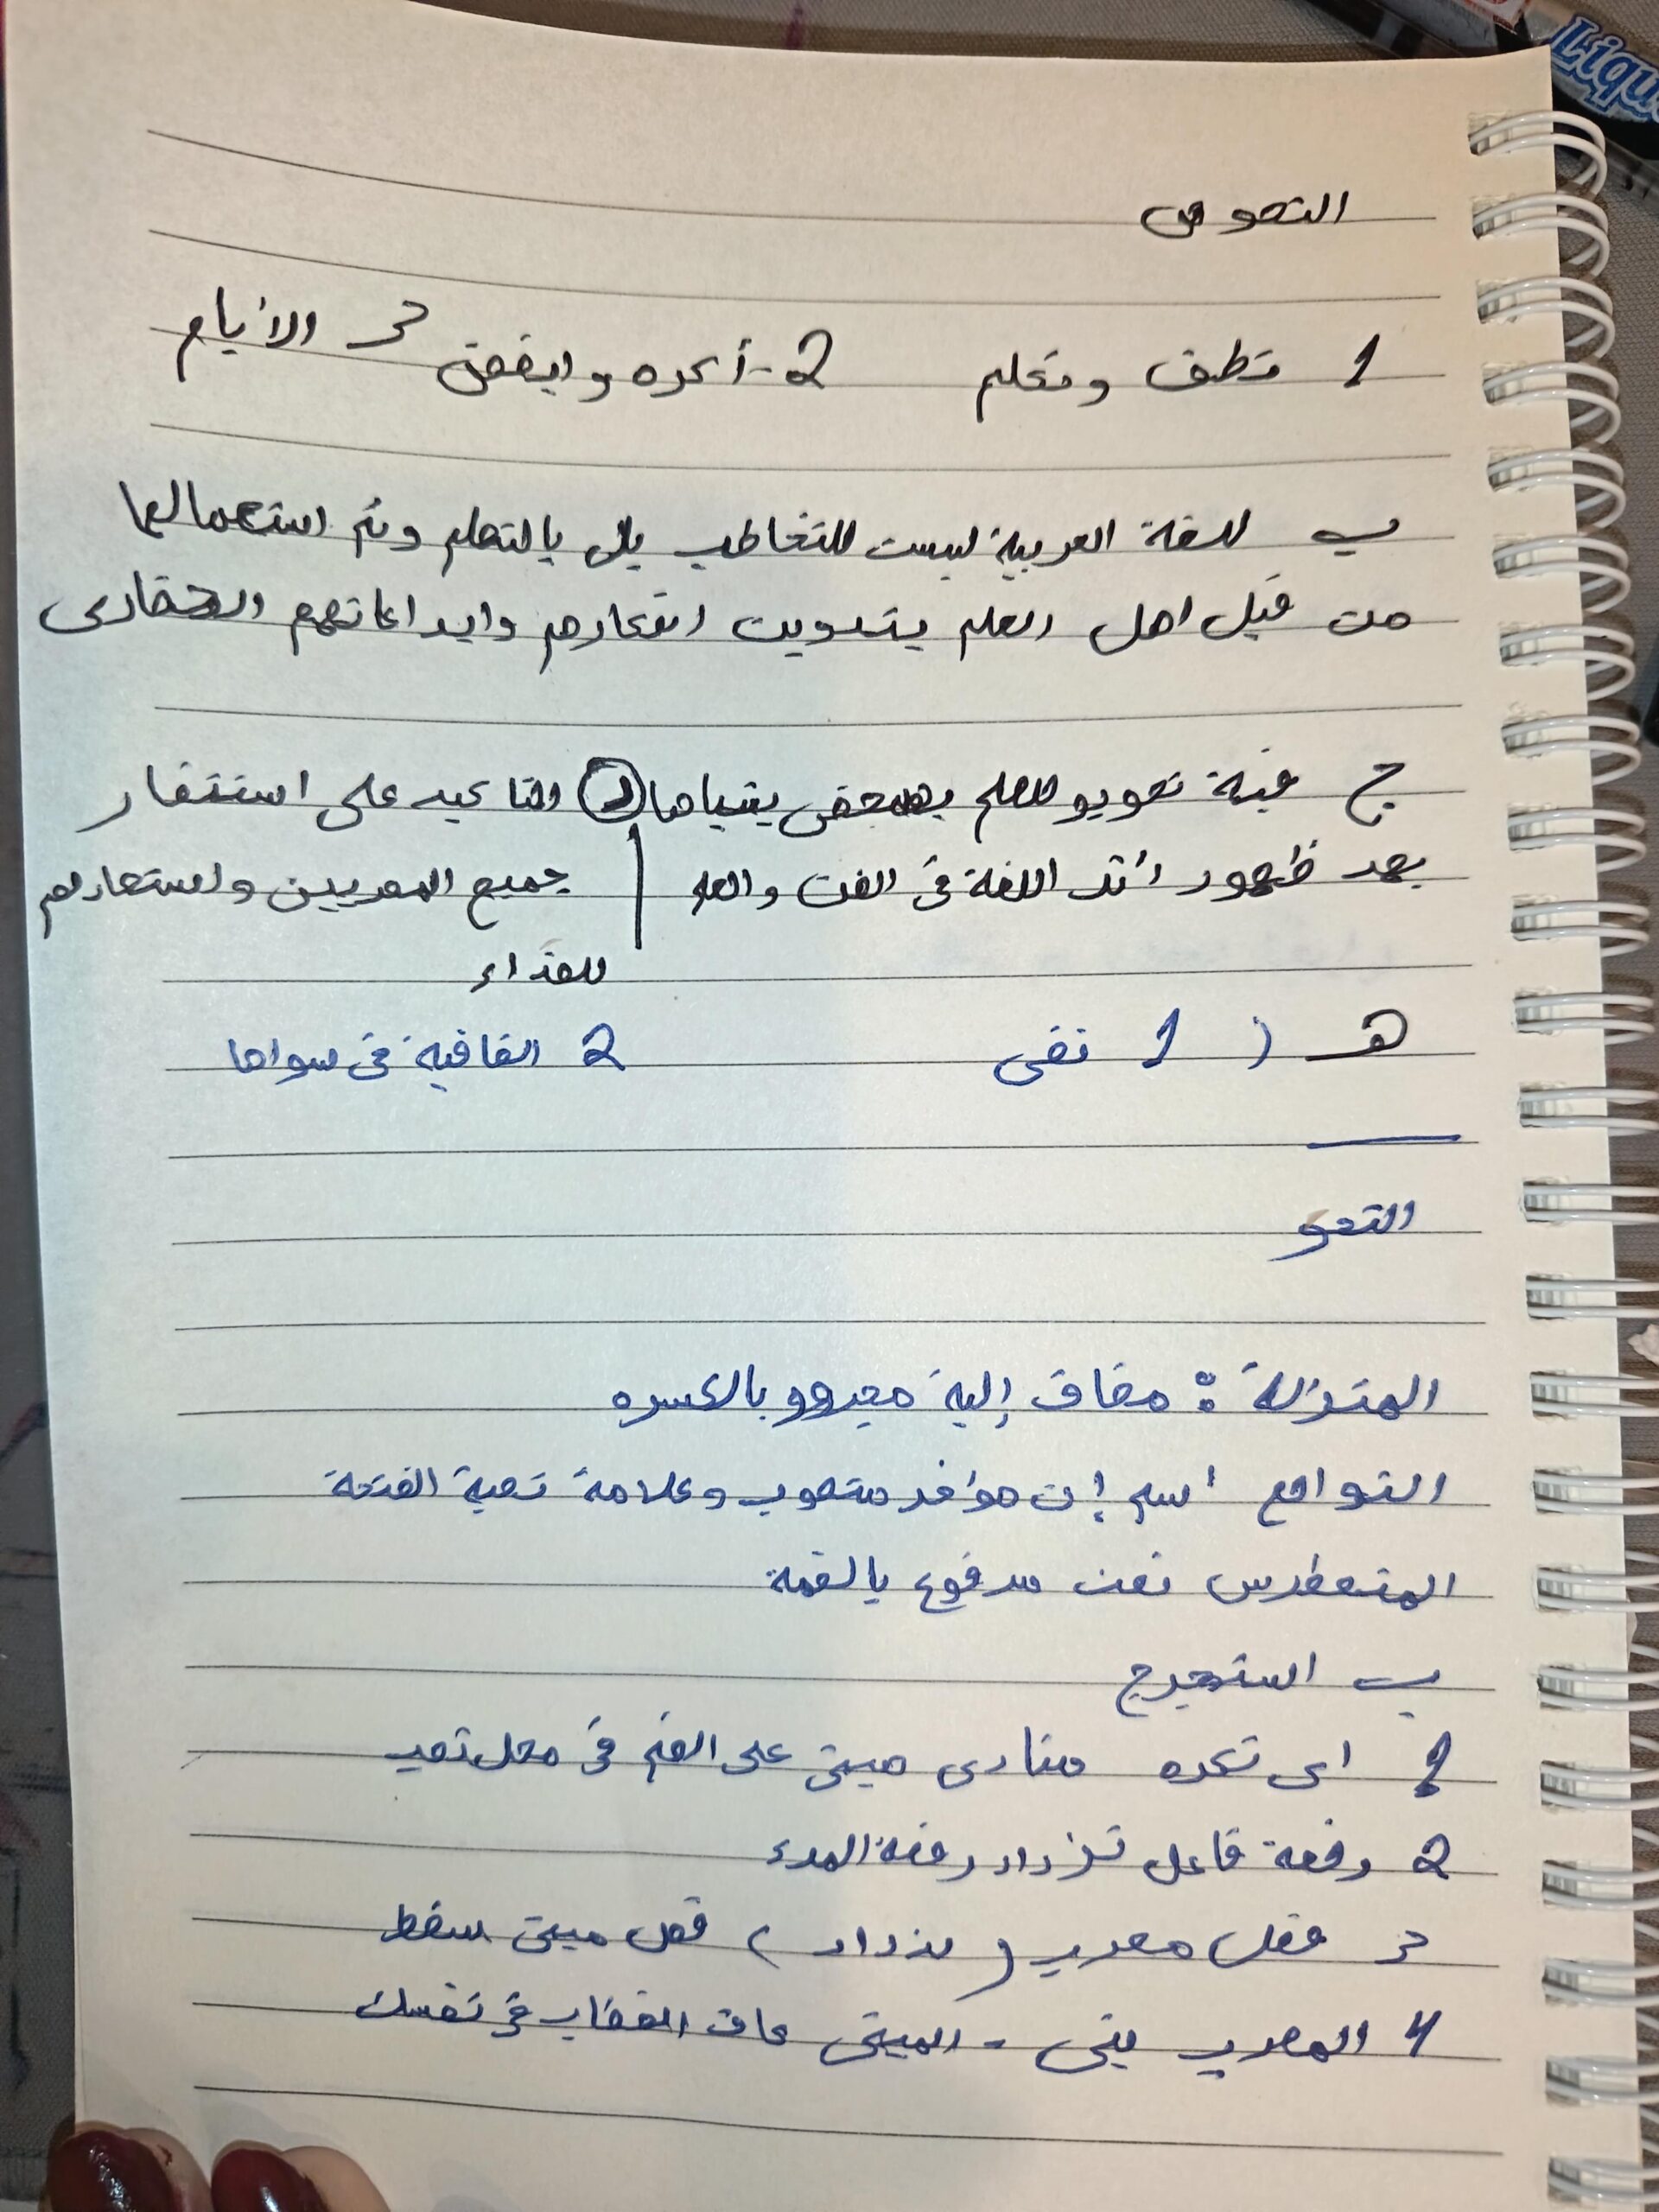 النصوص
1 تطق وتعلم 2- أكره وابغض 3 الأيام
ب للغة العربية ليست للتخاطب بل بالتعلم وتم استعمالها
من قبل اهل العلم بتدوين افكارهم وابداعاتهم الحضارى
ج فيه تصوير للعلم بعض يضياها (د) التاكيد على استنفار
بعد ظهور أثر اللغة فى الفن والعلم جميع المصريين واستعدادهم
للفداء
هـ ( 1 نفى 2 القافية فى سواها
النحو
المنزلة : مضاف إلية مجرور بالكسره
التواضع اسم إن مؤخر منصوب وعلامة نصبة الفتحة
المتغطرس نعت مرفوع بالضمة
ب استخرج
1 اى نكره منادى مبنى على الضم فى محل نصب
2 رفعة فاعل تزداد رفعة المرء
3 فعل معرب ( تزداد ) فعل مبنى سقط
4 المعرب بنى - المبنى كاف الخطاب فى نفسك
Liqu